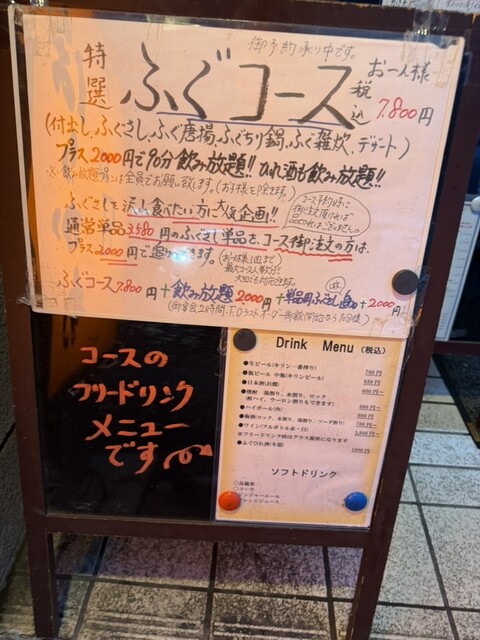 御予約承り中です。
特選 ふぐコース 税込 お一人様 7.800円
(付出し,ふぐさし,ふぐ唐揚,ふぐちり鍋,ふぐ雑炊,デザート)
プラス2000円で90分飲み放題!! ひれ酒も飲み放題!!
※飲み放題プランは全員でお願い致します。(お子様を除きます)
ふぐさしを沢山食べたい方に大人気企画!!
コース予約時に
御注文頂ければ
品切れはございません。
通常単品3.580円のふぐさし単品を、コース御注文の方は、
プラス2,000円で追加できます。
(お一人様1皿まで
ふぐコース7.800円+飲み放題2000円+単品用ふぐさし追加+2000円
コースの
フリードリンク
メニュー
です
Drink Menu (税込)
●生ビール(キリン一番搾り) 700円
●瓶ビール 中瓶(キリンビール) 850円
●日本酒(お燗) 600円~
●焼酎 湯割り、水割り、ロック
酎ハイ、ウーロン割りもできます)
●ハイボール(角)
●梅酒(ロック、水割り、湯割り、ソーダ割り)
●ワイン(フルボトル赤・白)
※フリードリンク時はグラス提供になります
●ふぐひれ酒
ソフトドリンク
○烏龍茶
○コーラ
ジンジャーエール
オレンジジュース